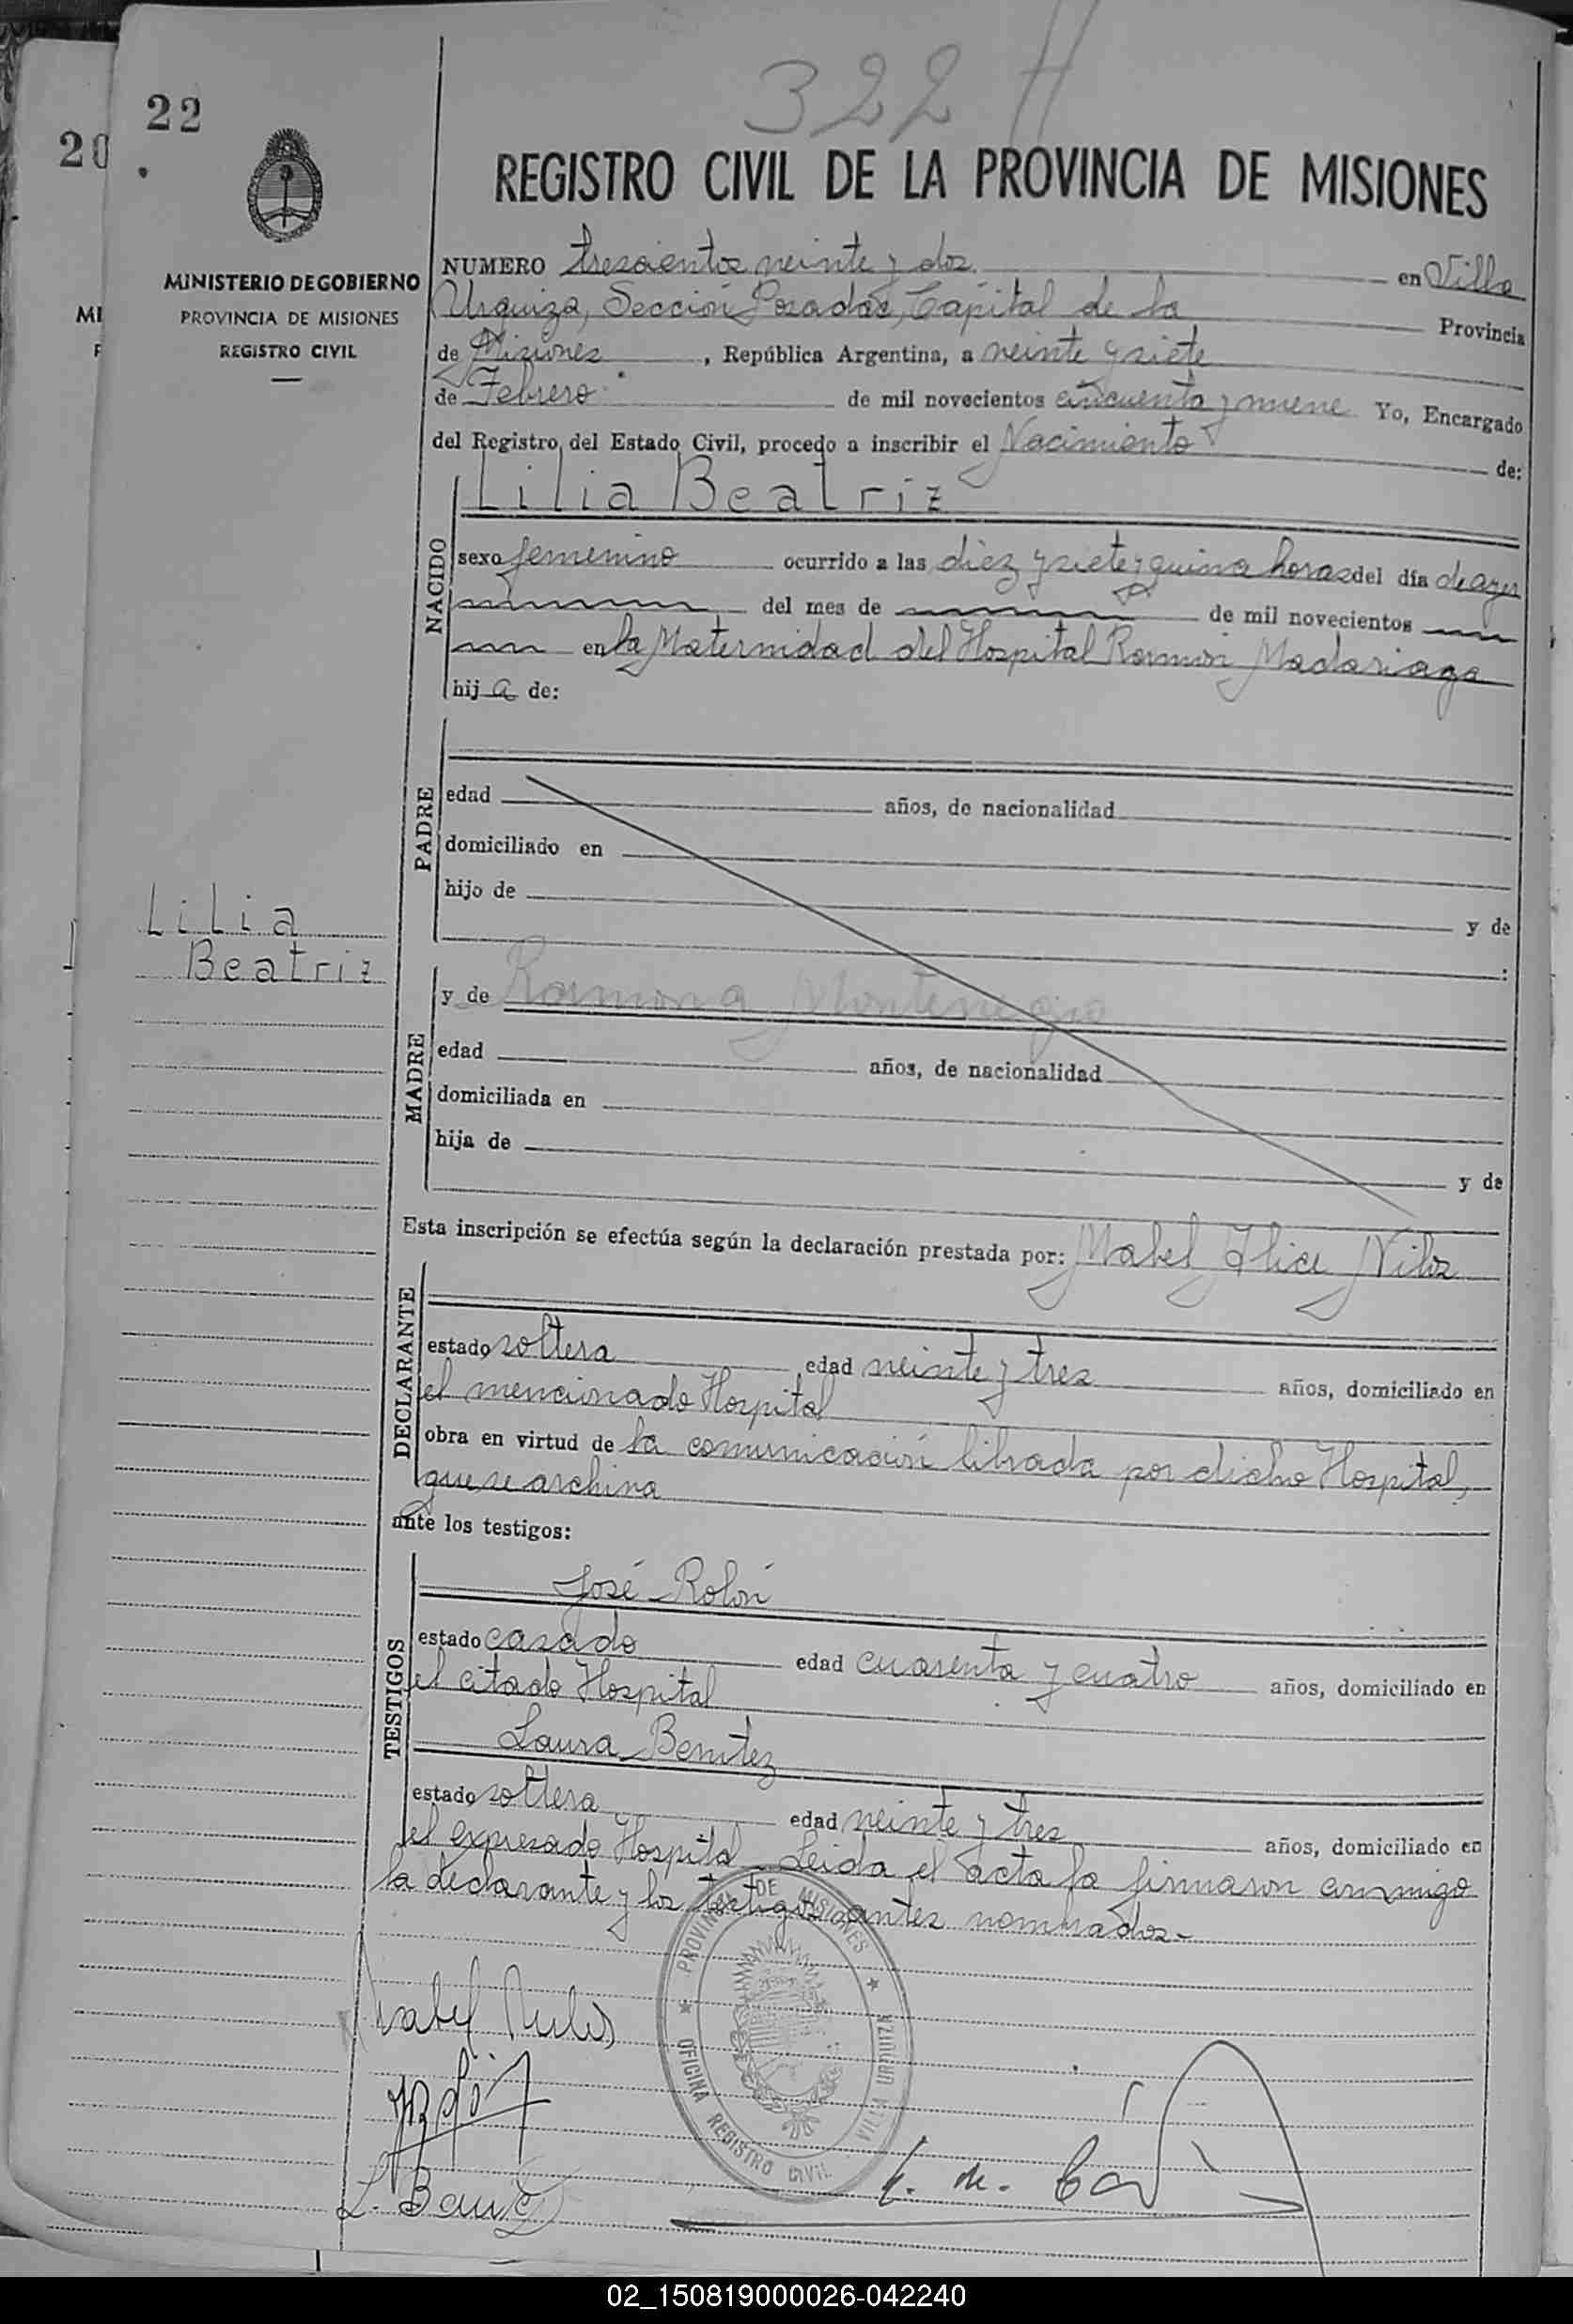 322
22
20
REGISTRO CIVIL DE LA PROVINCIA DE MISIONES
MINISTERIO DE GOBIERNO
PROVINCIA DE MISIONES
REGISTRO CIVIL
NUMERO trescientos veinte y dos en Villa
Urquiza, Sección Posadas, Capital de la Provincia
de Misiones, República Argentina, a veinte y siete
de Febrero de mil novecientos cincuenta y nueve Yo, Encargado
del Registro del Estado Civil, procedo a inscribir el Nacimiento de:
NACIDO
Lilia Beatriz
sexo femenino ocurrido a las diez y siete y quince horas del día de ayer
del mes de de mil novecientos
en la Maternidad del Hospital Ramón Madariaga
hija de:
PADRE
edad años, de nacionalidad
domiciliado en
hijo de y de
:
Lilia
Beatriz
MADRE
y de Ramona Montenegro
edad años, de nacionalidad
domiciliada en
hija de y de
Esta inscripción se efectúa según la declaración prestada por: Mabel Alice
DECLARANTE
estado soltera edad veinte y tres años, domiciliado en
el mencionado Hospital
obra en virtud de la comunicación librada por dicho Hospital,
que se archiva
ante los testigos:
TESTIGOS
José Rolón
estado casado edad cuarenta y cuatro años, domiciliado en
el citado Hospital
Laura Benitez
estado soltera edad veinte y tres años, domiciliado en
el expresado Hospital. Leida el acta la firmaron conmigo
la declarante y los testigos antes nombrados.-
PROVINCIA DE MISIONES
OFICINA REGISTRO CIVIL VILLA URQUIZA
L. Benitez
02_150819000026-042240